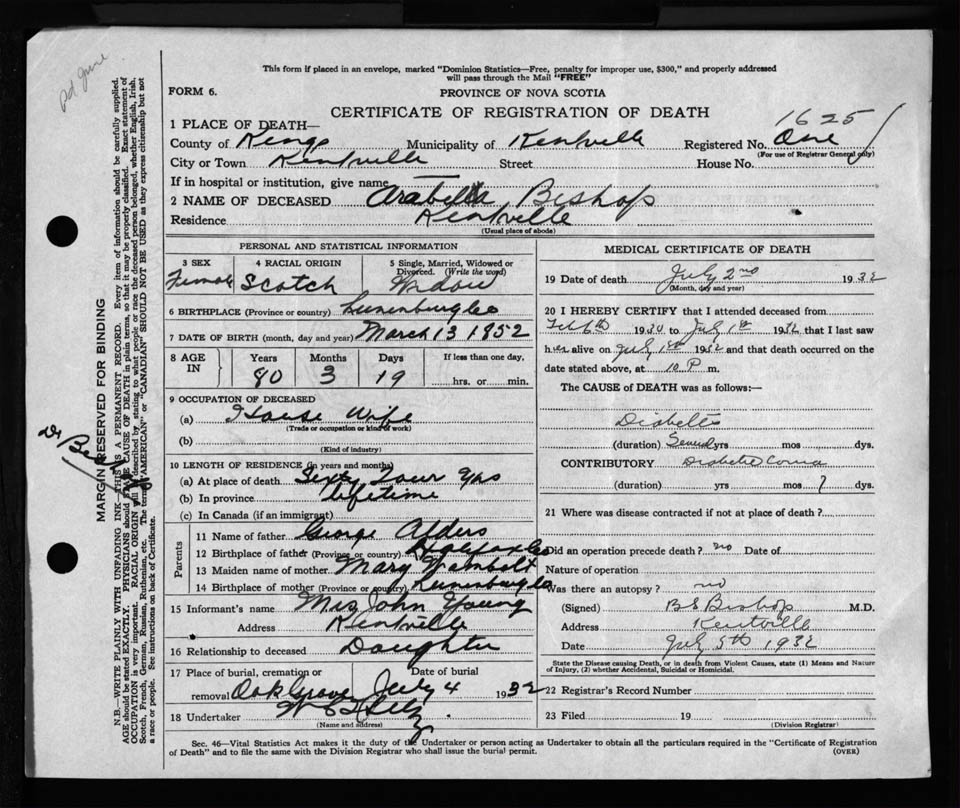 pd June
This form if placed in an envelope, marked "Dominion Statistics—Free, penalty for improper use, $300," and properly addressed
will pass through the Mail "FREE"
FORM 6.
PROVINCE OF NOVA SCOTIA
CERTIFICATE OF REGISTRATION OF DEATH
1625
1 PLACE OF DEATH—
County of Kings Municipality of Kentville Registered No. One
(For use of Registrar General only)
City or Town Kentville Street House No.
If in hospital or institution, give name —
2 NAME OF DECEASED Arabella Bishop
Residence Kentville
(Usual place of abode)
PERSONAL AND STATISTICAL INFORMATION
3 SEX 4 RACIAL ORIGIN 5 Single, Married, Widowed or
Divorced. (Write the word)
Female Scotch Widow
6 BIRTHPLACE (Province or country) Lunenburg Co
7 DATE OF BIRTH (month, day and year) March 13 1852
8 AGE IN Years Months Days If less than one day,
80 3 19 hrs. or min.
9 OCCUPATION OF DECEASED
(a) House Wife
(Trade or occupation or kind of work)
(b)
(Kind of industry)
10 LENGTH OF RESIDENCE (in years and months)
(a) At place of death Sixty Four yrs
(b) In province lifetime
(c) In Canada (if an immigrant)
Parents
11 Name of father George Alders
12 Birthplace of father (Province or country) Halifax Co
13 Maiden name of mother Mary Wambolt
14 Birthplace of mother (Province or country) Lunenburg Co
15 Informant's name Mrs John Young
Address Kentville
16 Relationship to deceased Daughter
17 Place of burial, cremation or Date of burial
removal Oak Grove July 4 1932
18 Undertaker
(Name and address)
MEDICAL CERTIFICATE OF DEATH
19 Date of death July 2nd 1932
(Month, day and year)
20 I HEREBY CERTIFY that I attended deceased from
Feb 6th 1930 to July 1st 1932 that I last saw
her alive on July 1st 1932 and that death occurred on the
date stated above, at 10 P m.
The CAUSE of DEATH was as follows:—
Diabetes
(duration) Several yrs mos dys.
CONTRIBUTORY Diabetes Coma
(duration) yrs mos ? dys.
21 Where was disease contracted if not at place of death?
Did an operation precede death? no Date of
Nature of operation
Was there an autopsy? no
(Signed) B S Bishop M.D.
Address Kentville
Date July 5th 1932
State the Disease causing Death, or in death from Violent Causes, state (1) Means and Nature
of Injury, (2) whether Accidental, Suicidal or Homicidal.
22 Registrar's Record Number
23 Filed 19
(Division Registrar)
Sec. 46—Vital Statistics Act makes it the duty of the Undertaker or person acting as Undertaker to obtain all the particulars required in the "Certificate of Registration
of Death" and to file the same with the Division Registrar who shall issue the burial permit. (OVER)
MARGIN RESERVED FOR BINDING
N.B.—WRITE PLAINLY WITH UNFADING INK—THIS IS A PERMANENT RECORD. Every item of information should be carefully supplied.
AGE should be stated EXACTLY. PHYSICIANS should state CAUSE OF DEATH in plain terms, so that it may be properly classified. Exact statement of
OCCUPATION is very important. RACIAL ORIGIN will be described by stating to what people or race the deceased person belonged, whether English, Irish,
Scotch, French, German, Russian, Ruthenian, etc. The terms "AMERICAN" or "CANADIAN" SHOULD NOT BE USED as they express citizenship but not
a race or people. See instructions on back of Certificate.